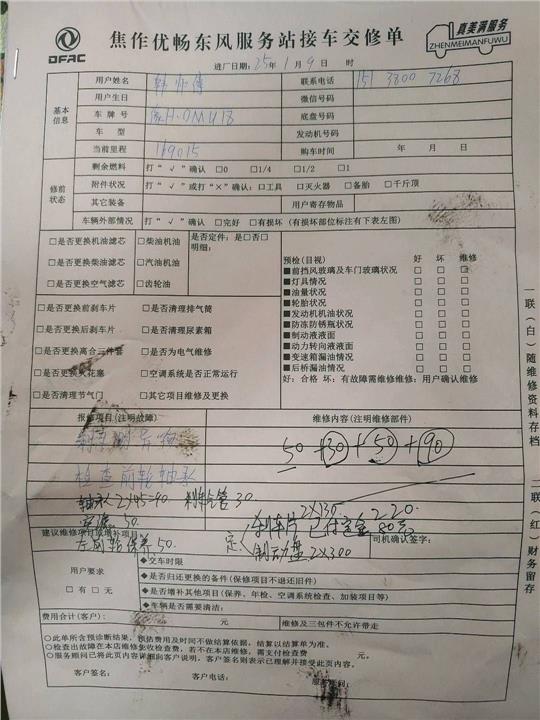 DFAC
焦作优畅东风服务站接车交修单
真美满服务
ZHENMEIMANFUWU
进厂日期：25年1月9日 时
基本信息
用户姓名 联系电话 151 3800 7268
用户生日 微信号码
车牌号 底盘号码
车型 发动机号码
当前里程 169015 购车时间 年 月 日
修前状态
剩余燃料 打“√”确认 □0 □1/4 □1/2 □1
附件状况 打“√”或打“×”确认：□工具 □灭火器 □备胎 □千斤顶
其它装备 用户寄存物品
车辆外部情况 打“√”确认 □完好 □有损坏（有损坏部位标注有下表左图）
□是否更换机油滤芯 □柴油机油 是否定件：是□否□
□是否更换柴油滤芯 □汽油机油 明细：
□是否更换空气滤芯 □齿轮油
预检(目视) 好 坏 维修
■前挡风玻璃及车门玻璃状况 □ □ □
■灯具情况 □ □ □
■油量状况 □ □ □
■轮胎状况 □ □ □
■发动机机油状况 □ □ □
■防冻防锈瓶状况 □ □ □
■制动液液面 □ □ □
■动力转向液液面 □ □ □
■变速箱漏油情况 □ □ □
■后桥漏油情况 □ □ □
好：合格 坏：有故障需维修维修：用户确认维修
□是否更换前刹车片 □是否清理排气筒
□是否更换后刹车片 □是否清理尿素箱
□是否更换离合三件套 □是否为电气维修
□是否更换火花塞 □空调系统是否正常运行
□是否清理节气门 □其它项目维修及更换
报修项目(注明故障) 维修内容(注明维修部件)
50+30+50+90
检查前轮轴承
轴承2×45=90 30
50
2×130 220
刹车片 已付定金80元
建议维修项目或增补项目： 司机确认签字：
左前轮保养50
定 制动盘2×300
用户要求
□有 □无
◆交车时限
◆是否归还更换的备件(保修项目不退还旧件)
◆是否增补其他项目(保养、年检、空调系统检查、加装项目等)
◆车辆是否需要清洁：
费用合计(客户)： 元 维修及三包件不允许带走
○此单所含预诊断结果，预估费用及时间不做结算依据，结算以结算单为准。
○检查出故障在本店维修免收检查费，若不在本店维修，需支付检查费 元。
○服务顾问已将此页内容详细向客户说明，客户签名则表示已理解并接受此页内容。
客户签名： 客户电话： 服务顾问：
一联（白）随维修资料存档
二联（红）财务留存